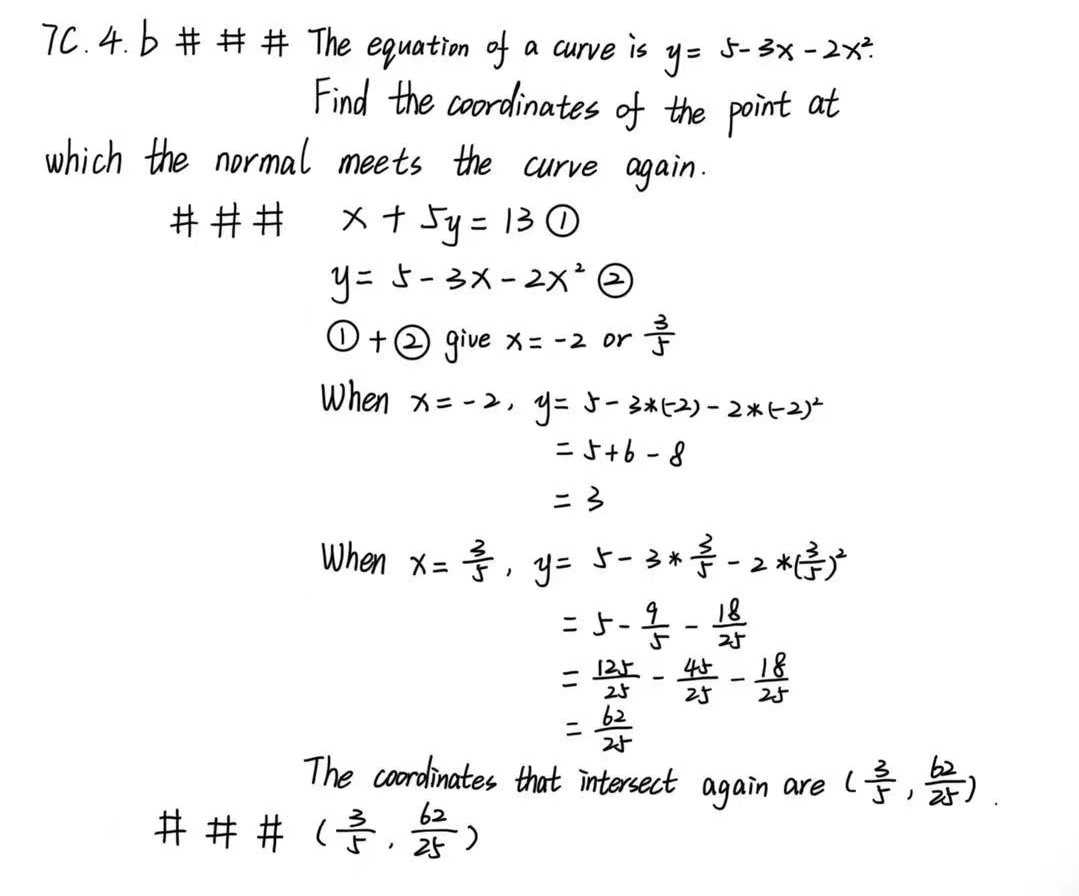 7C.4.b # # # The equation of a curve is y = 5-3x-2x².
Find the coordinates of the point at
which the normal meets the curve again.
# # # x + 5y = 13 ①
y = 5 - 3x - 2x² ②
① + ② give x = -2 or 3/5
When x = -2, y = 5 - 3*(-2) - 2*(-2)²
= 5+6-8
= 3
When x = 3/5, y = 5 - 3 * 3/5 - 2 *(3/5)²
= 5 - 9/5 - 18/25
= 125/25 - 45/25 - 18/25
= 62/25
The coordinates that intersect again are (3/5, 62/25).
# # # (3/5, 62/25)